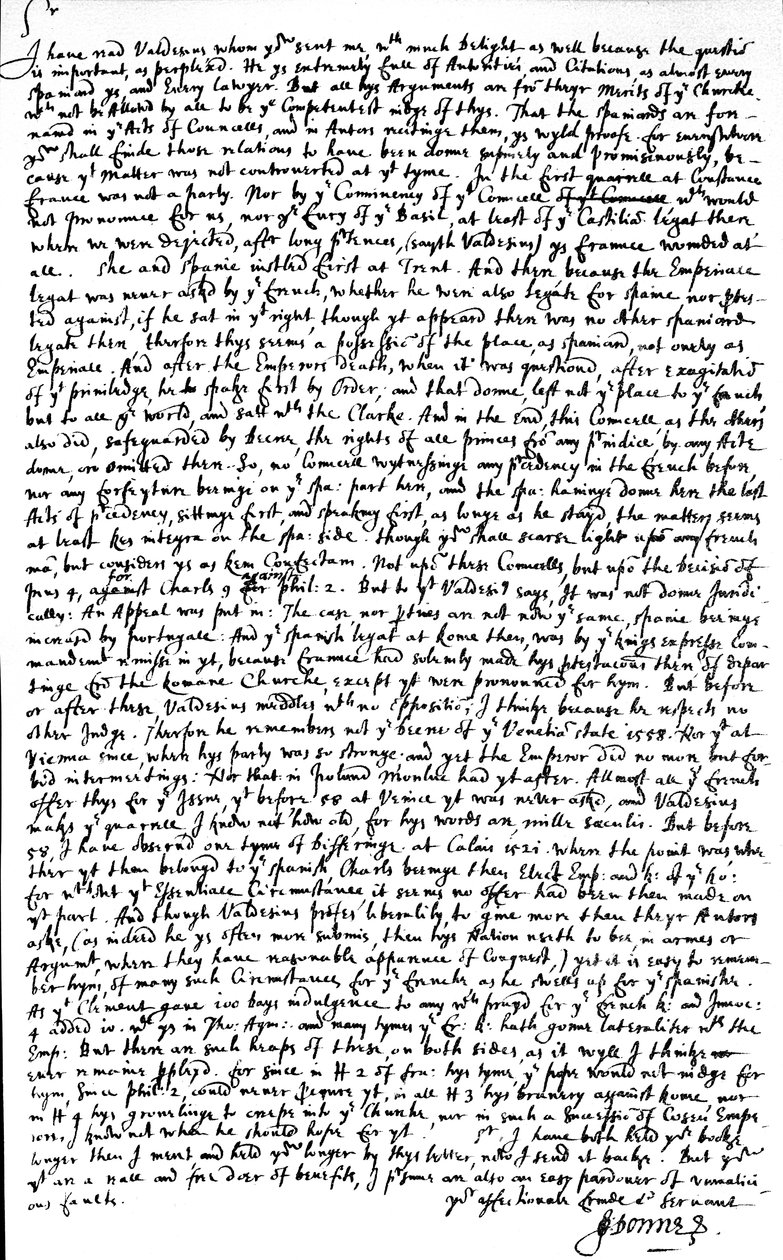 Sr
I have read Valdesius whom yow sent me, wth much delight as well because the questiō
is important, as perplexd. He ys extremely full of Autorities, and Citations, as almost every
Spaniard ys, and every lawyer. But all hys Arguments are frō theyr Merits of ye Churche,
wch not be Allowd by all to be ye Competentest iudge of thys. That the spaniards are for-
namd in ye Acts of Councells, and in Autors recitinge them, ys wyld proofe. for every where
yow shall finde those relations to have been donne and promiscuously, be-
cause yt matter was not controverted at yt tyme. In the first quarrell at Constance
France was not a party. Nor by ye Cominency of ye Councell of yt Councell wch would
not pronounce for us, nor ye Fury of ye Basil, at least of ye Castiliā legat there
where we were dejected, after long prtences, (sayth Valdesius) ys France wounded at
all. She and Spaine iustled first at Trent. And there because the Emperiall
legat was never askd by ye French, whether he were also legate for spaine nor ptes-
ted against, if he sat in yt right, though yt appeard there was no other spaniard
legate there therfore thys seems a possessiō of the place, as spaniard, not onely as
Emperiall. And after the Emperors death, when it was questiond, after exagitatiō
of yt priviledge, he spake first by Order, and that donne, left not ye place to ye French
but to all ye world, and satt wth the Clarke. And in the End, this Councell as the others
also did, safeguarded by Decree, the rights of all princes frō any prjudice by any Acte
donne, or omitted there. So, no Councell wytnessinge any prcedency in the French before,
nor any forfeyture beeinge on ye spa: part here, and the spa: havinge donne here the last
Acts of prcedency, sittinge first and speaking first, as longe as he stayd, the matter seems
at least Res integra on the spa: side. though yow shall scarse light upō any French
mā, but considers ys as Rem Confectam. Not upō these Councells, but upō the Decisiō of
Pius 4, for against Charls 9 against for Phil: 2. But to yt Valdesius says, It was not donne Juridi-
cally: An Appeal was put in: The case nor pties are not now ye same, spaine beeinge
increasd by Portugale: And ye spanish legat at Rome then, was by ye kings expresse com-
mandemt remisse in yt, because France had solemly made hys ptestations then of depar-
tinge, frō the Romane Churche, except yt were pronounced for hym. But before
or after these Valdesius meddles wth no Oppositiō; I thinke because he respects no
other Judge. Therfore he remembers not ye decree of ye Venetiā state 1558. Nor yt at
Vienna since, where hys party was so stronge and yet the Emperor did no more but for-
bid intermeetings. Nor that in Poland Monluc had yt after. Allmost all ye French
offer thys for ye Issue, yt before 58 at Venice yt was never askd, and Valdesius
makes ye quarrell, I know not how old, for hys words are, mille saeculis. But before
58, I have observd one tyme of differinge. at Calais 1521. where the point was whe-
ther yt then belongd to ye spanish, Charls beeinge then Elect Emp: and K: of ye Ro:
for wthout yt Essentiall Circumstance it seems no offer had been then made on
yt part. And though Valdesius profes liberality, to give more then theyr Autors
aske, (as indeed he ys often more submis, then hys Nation useth to bee, in armes or
Argumt, where they have reasonable apparance of Conquest,) yet it is easy to remem-
ber hym, of many such Circumstances for ye Frenche as he swells up for ye spanishe.
As yt Clement gave 100 days indulgence to any wch prayd for ye french K: and Innoc:
4 added 10. wch ys in Tho: Aqui: and many tymes ye Fr: K: hath gonne lateraliter wth the
Emp: But there are such heaps of these, on both sides, as it wyll I thinke
ever remaine pplexd. For since in H 2 of fra: hys tyme, ye pope would not iudge for
hym, since Phil: 2, could never prcure yt, in all H 3 hys bravery against Rome nor
in H 4 hys grovelinge to creepe into ye Churche, nor in such a Successiō of Coseñ Empe-
rors, I know not when he should hope for yt. Sr, I have both held yor booke
longer then I ment and held yow longer by thys letter, now I send it backe. But yow
yt are a reall and free doer of benefits, I prsume are also an easy pardoner of unmalici-
ous faults.
yor affectionate frinde & servant
JDonne